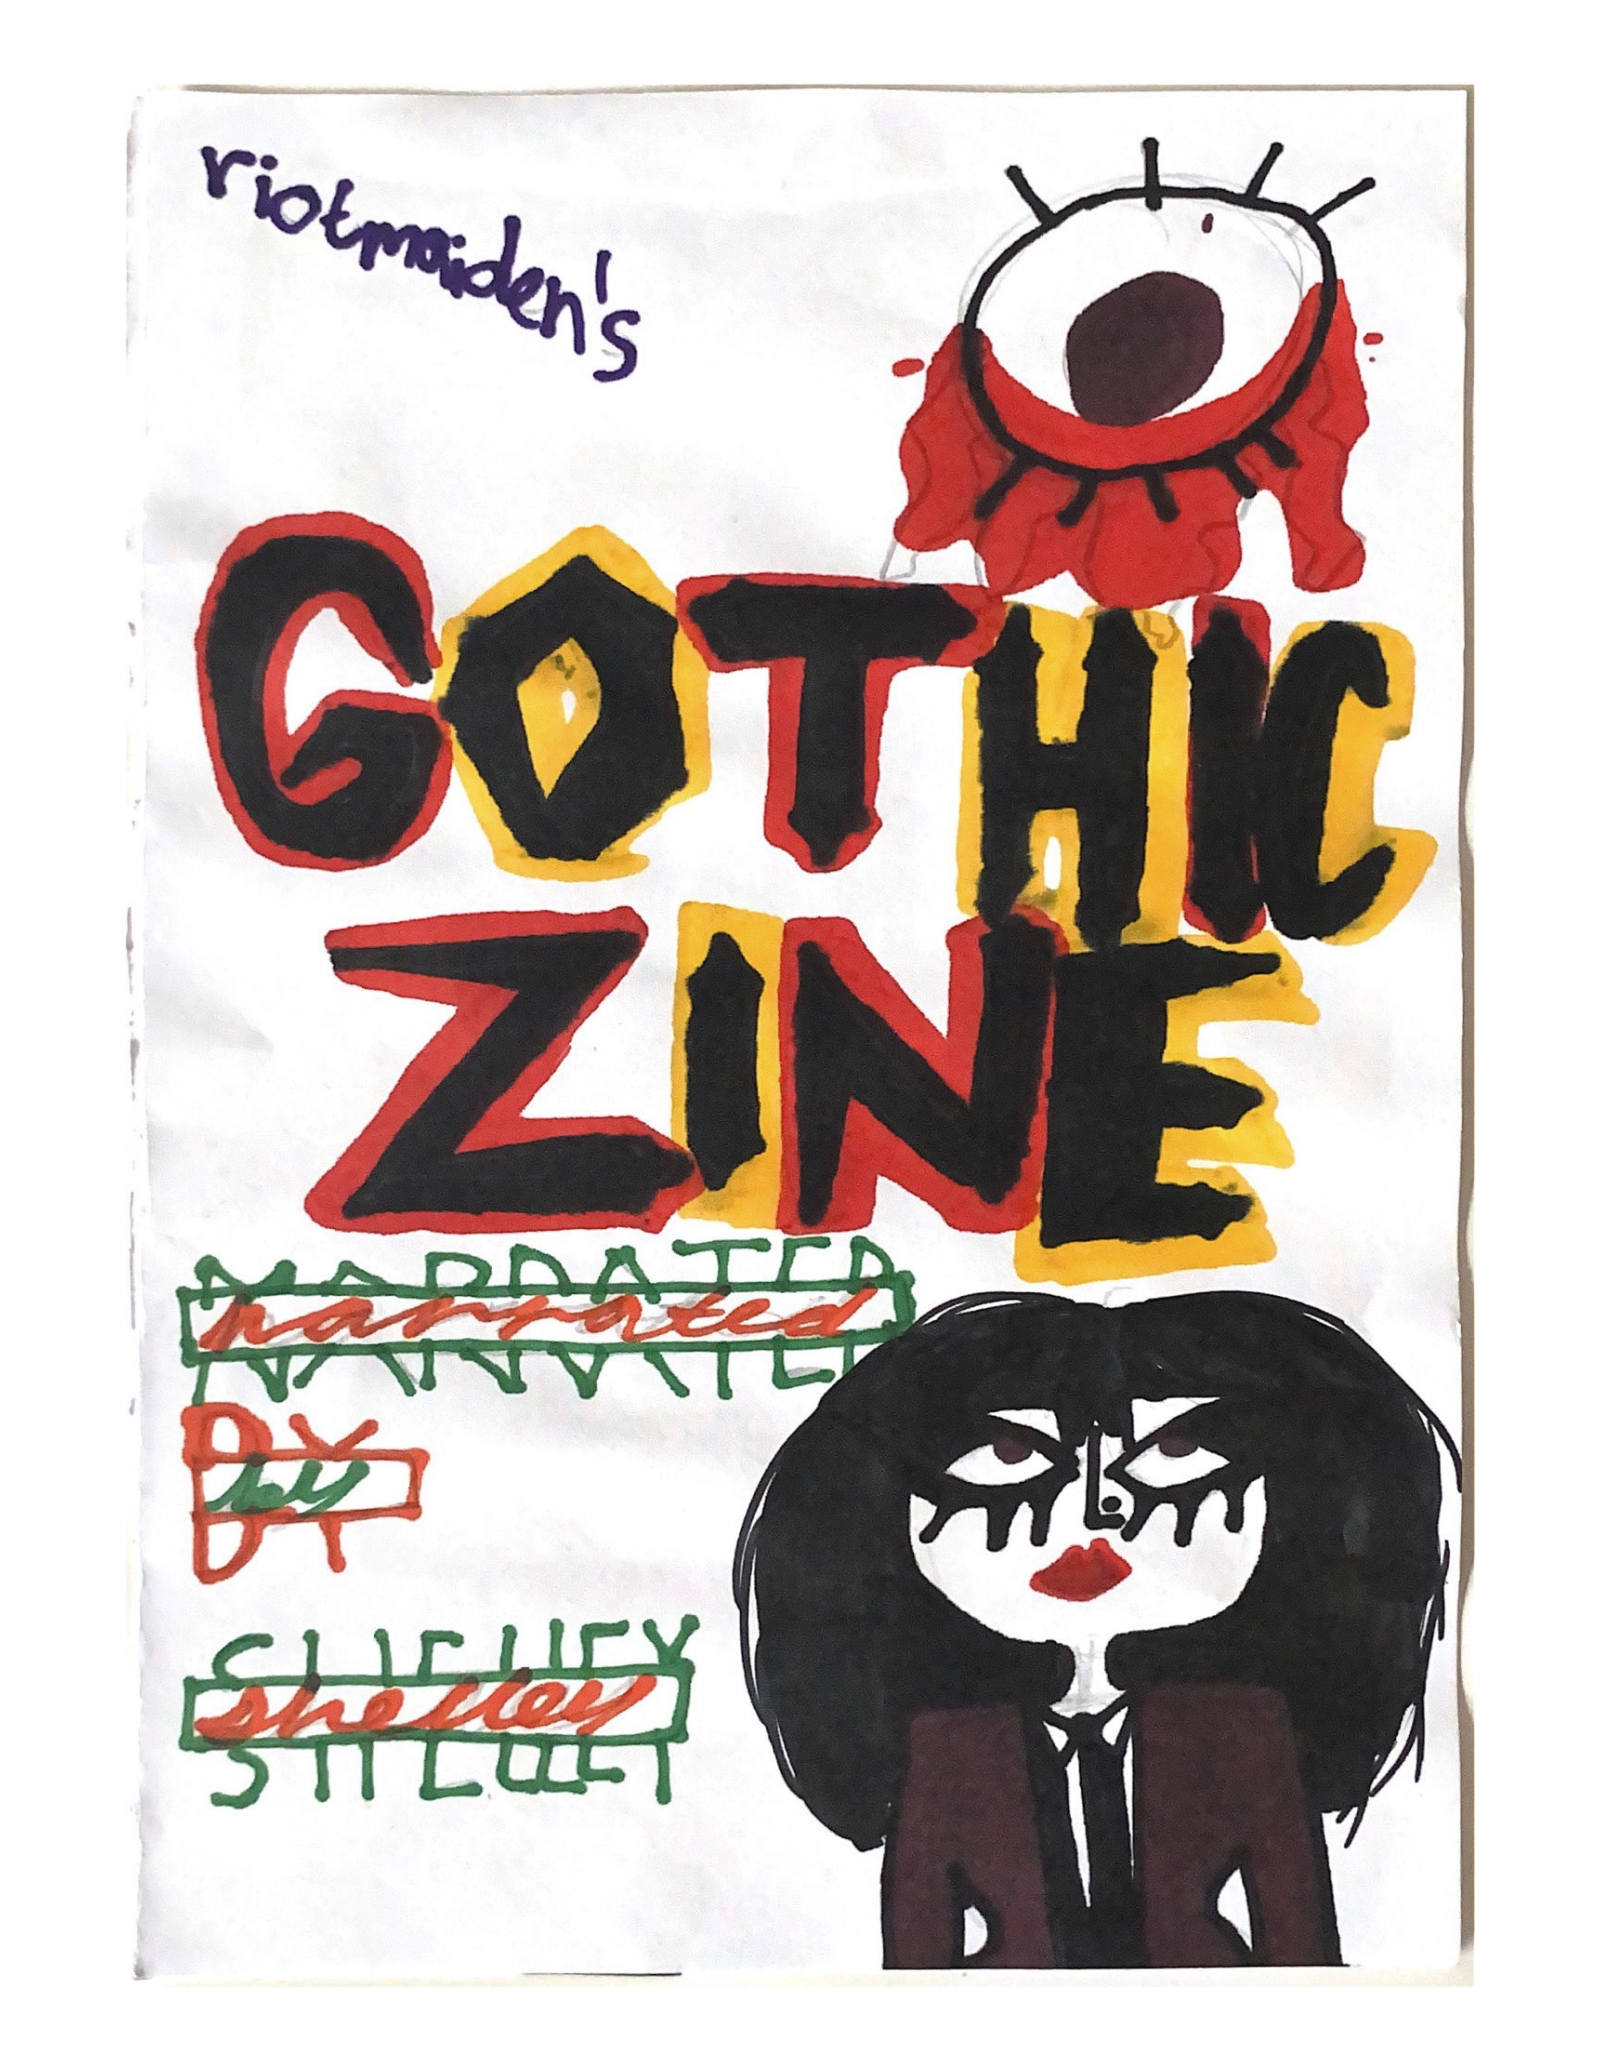 riotmaiden's
GOTHIC
ZINE
NARRATED
narrated
BY
by
SHELLEY
shelley